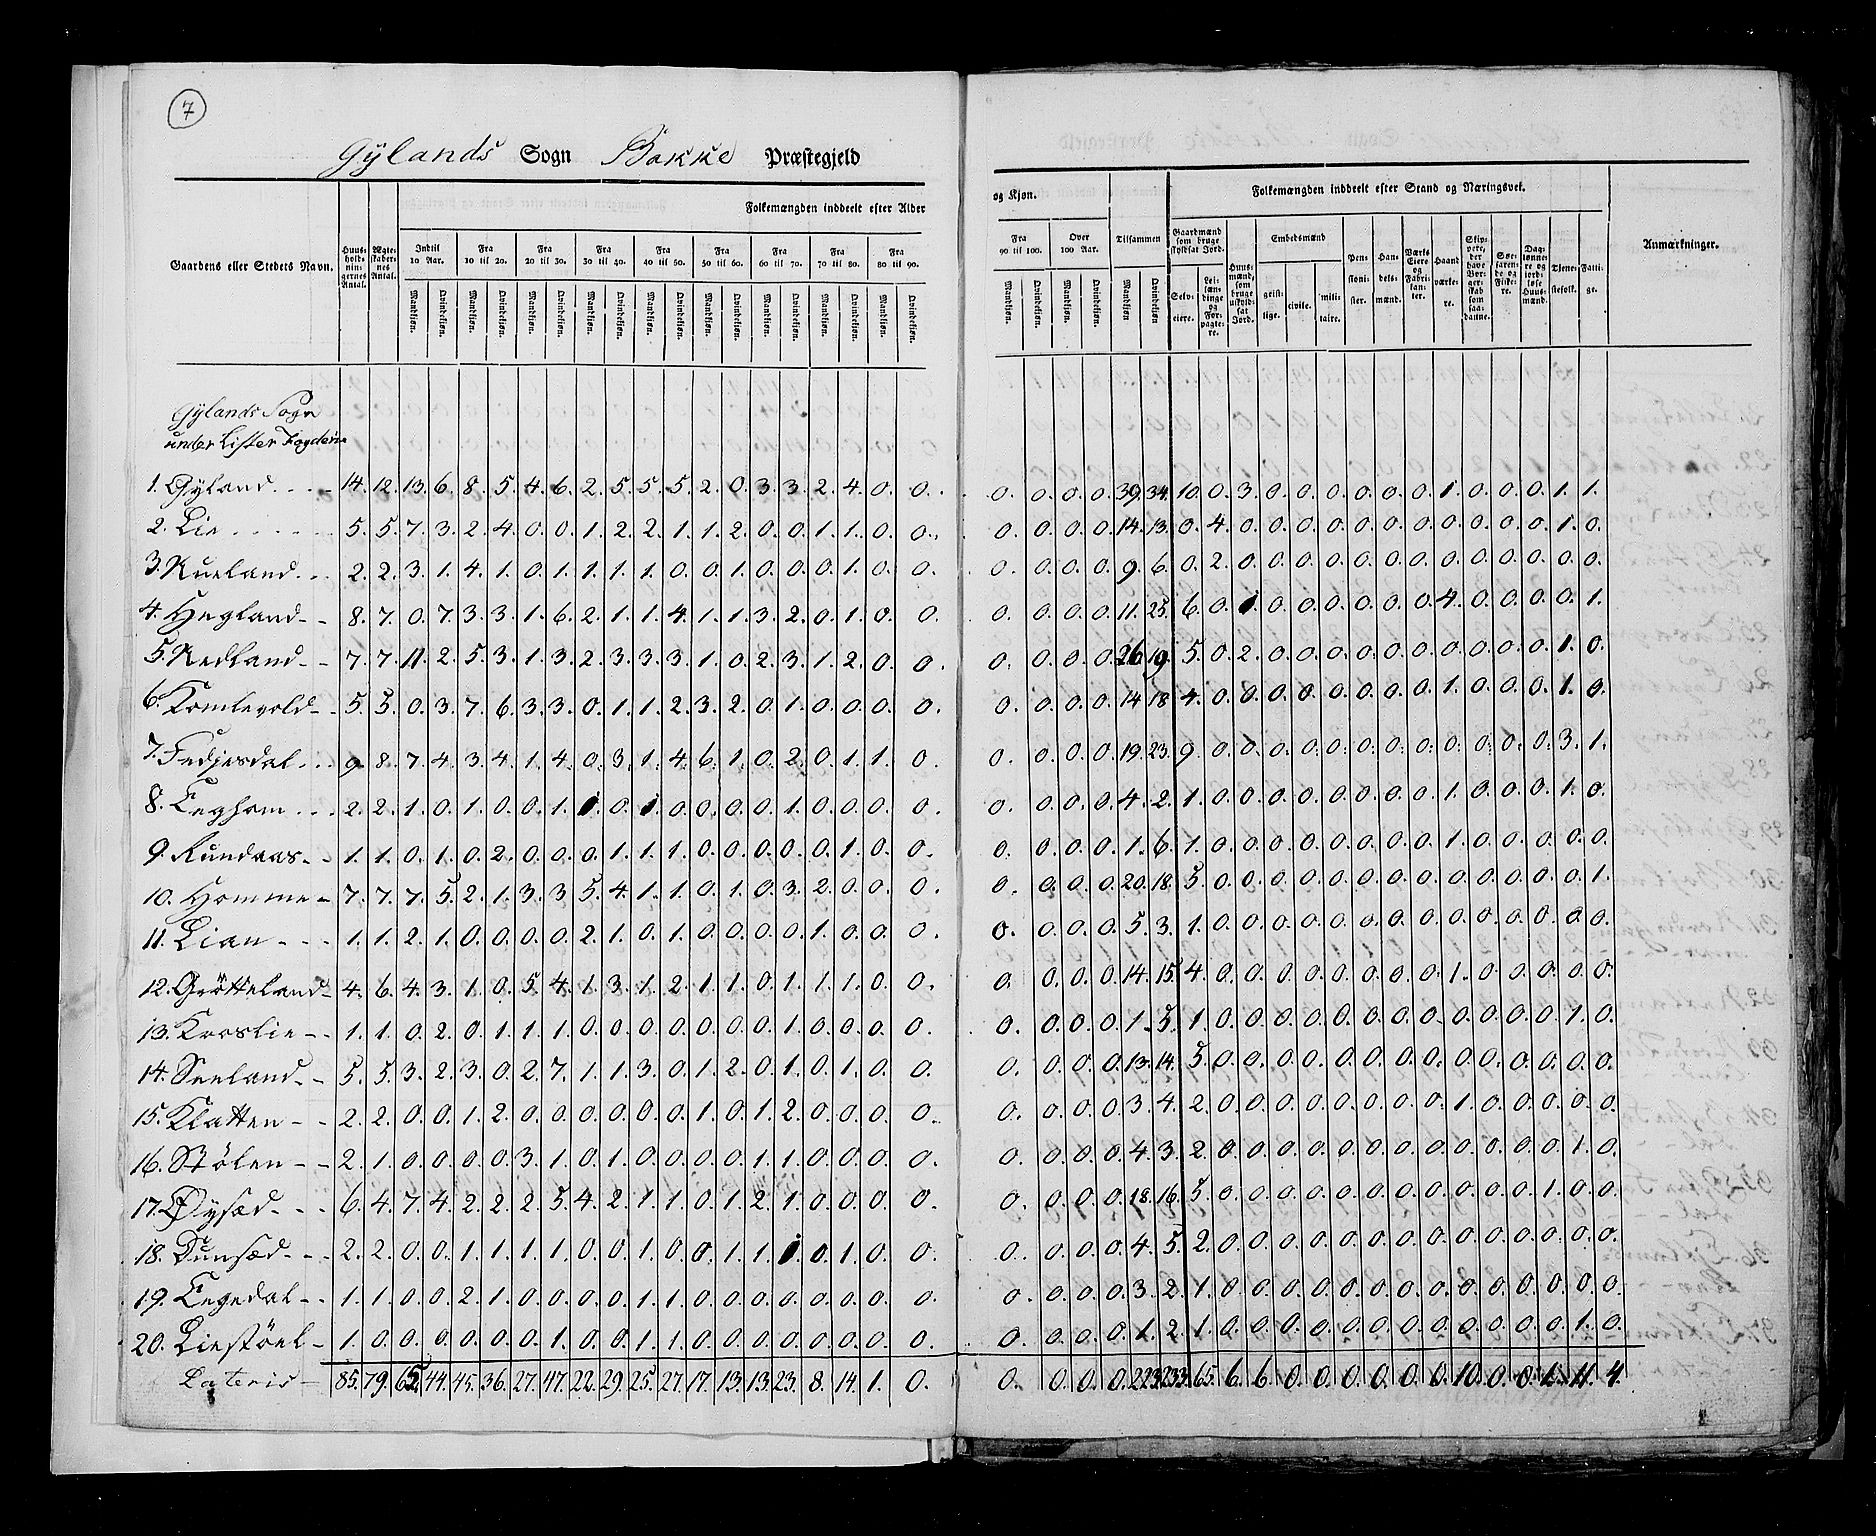 7
Gÿlands Sogn Bakke Præstegjeld
Gaardens eller Stedets Navn.
Huus-holdnin-gernes Antal.
Ægte-skaber-nes Antal.
Folkemængden inddeelt efter Alder
Indtil 10 Aar. Fra 10 til 20. Fra 20 til 30. Fra 30 til 40. Fra 40 til 50. Fra 50 til 60. Fra 60 til 70. Fra 70 til 80. Fra 80 til 90.
Mandkiøn. Qvindekiøn. Mandkiøn. Qvindekiøn. Mandkiøn. Qvindekiøn. Mandkiøn. Qvindekiøn. Mandkiøn. Qvindekiøn. Mandkiøn. Qvindekiøn. Mandkiøn. Qvindekiøn. Mandkiøn. Qvindekiøn. Mandkiøn. Qvindekiøn.
og Kjøn.
Fra 90 til 100. Over 100 Aar. Tilsammen
Mandkiøn. Qvindekiøn. Mandkiøn. Qvindekiøn. Mandkiøn Qvindekiøn
Folkemængden inddeelt efter Stand og Næringsvei.
Gaardmænd som bruge skyldsat Jord.
Selv-eiere. Lei-lændinge og For-pagte-re.
Huus-mænd, som bruge uskyld-sat Jord.
Embedsmænd
geist-lige. civile. mili-taire.
Pen-sioni-ster. Han-dels-mænd. Værks Eiere og Fabri-kan-ter. Haand værke-re. Skip-pere, der have Bor-ger-skab som saa-danne. Søe-faren-de og Fiske-re. Dag-lønne-re og jord-løse Huus-mænd. Tjene-stefolk. Fatti-ge.
Anmærkninger.
Gÿlands Sogn
under Lister Fogderie
1. Gÿland 14. 12. 13. 6. 8. 5. 4. 6. 2. 5. 5. 5. 2. 0. 3. 3. 2. 4. 0. 0. 0. 0. 0. 0. 39. 34. 10. 0. 3. 0. 0. 0. 0. 0. 0. 1. 0. 0. 0. 1. 1.
2. Lie 5. 5. 7. 3. 2. 4. 0. 0. 1. 2. 2. 1. 1. 2. 0. 0. 1. 1. 0. 0. 0. 0. 0. 0. 14. 13. 0. 4. 0. 0. 0. 0. 0. 0. 0. 0. 0. 0. 0. 1. 0.
3. Rueland 2. 2. 3. 1. 4. 1. 0. 1. 1. 1. 1. 0. 0. 1. 0. 0. 0. 1. 0. 0. 0. 0. 0. 0. 9. 6. 0. 2. 0. 0. 0. 0. 0. 0. 0. 0. 0. 0. 0. 0. 0.
4. Hegland 8. 7. 0. 7. 3. 3. 1. 6. 2. 1. 1. 4. 1. 1. 3. 2. 0. 1. 0. 0. 0. 0. 0. 0. 11. 25. 6. 0. 1. 0. 0. 0. 0. 0. 0. 4. 0. 0. 0. 0. 1.
5. Redland 7. 7. 11. 2. 5. 3. 1. 3. 2. 3. 3. 3. 1. 0. 2. 3. 1. 2. 0. 0. 0. 0. 0. 0. 26 19. 5. 0. 2. 0. 0. 0. 0. 0. 0. 0. 0. 0. 0. 1. 0.
6. Komlevold 5. 5. 0. 3. 7. 6. 3. 3. 0. 1. 1. 2. 3. 2. 0. 1. 0. 0. 0. 0. 0. 0. 0. 0. 14 18 4. 0. 0. 0. 0. 0. 0. 0. 0. 1. 0. 0. 0. 1. 0.
7. Fedjesdal 9 8. 7. 4. 3. 4. 1. 4. 0. 3. 1. 4. 6. 1. 0. 2. 0. 1. 1. 0. 0. 0. 0. 0. 19. 23. 9. 0. 0. 0. 0. 0. 0. 0. 0. 0. 0. 0. 0. 3. 1.
8. Leghom 2. 2. 1. 0. 1. 0. 0. 1. 1. 0. 1. 0. 0. 0. 0. 1. 0. 0. 0. 0. 0. 0. 0. 0. 4. 2. 1. 0. 0. 0. 0. 0. 0. 0. 0. 1. 0. 0. 0. 1. 0.
9. Rundaas 1. 1. 0. 1. 0. 2. 0. 0. 0. 1. 1. 1. 0. 0. 0. 0. 0. 1. 0. 0. 0. 0. 0. 0. 1. 6. 1. 0. 0. 0. 0. 0. 0. 0. 0. 1. 0. 0. 0. 0. 0.
10. Homme 7. 7. 7. 5. 2. 1. 3. 3. 5. 4. 1. 1. 0. 1. 0. 3. 2. 0. 0. 0. 0. 0. 0. 0. 20. 18. 5. 0. 0. 0. 0. 0. 0. 0. 0. 0. 0. 0. 0. 0. 1.
11. Lian 1. 1. 2. 1. 0. 0. 0. 0. 2. 1. 0. 1. 0. 0. 0. 0. 1. 0. 0. 0. 0. 0. 0. 0. 5. 3. 1. 0. 0. 0. 0. 0. 0. 0. 0. 0. 0. 0. 0. 0. 0.
12. Grötteland 4. 6. 4. 3. 1. 0. 5. 4. 1. 3. 1. 2. 1. 1. 0. 1. 1. 1. 0. 0. 0. 0. 0. 0. 14. 15. 4. 0. 0. 0. 0. 0. 0. 0. 0. 1. 0. 0. 0. 0. 0.
13. Kroslie 1. 1. 0. 2. 0. 1. 1. 1. 0. 0. 0. 0. 0. 0. 0. 1. 0. 0. 0. 0. 0. 0. 0. 0. 1. 5. 1. 0. 0. 0. 0. 0. 0. 0. 0. 0. 0. 0. 0. 1. 0.
14. Seeland 5. 5. 3. 2. 3. 0. 2. 7. 1. 1. 3. 0. 1. 2. 0. 1. 0. 1. 0. 0. 0. 0. 0. 0. 13. 14. 5. 0. 0. 0. 0. 0. 0. 0. 0. 0. 0. 0. 0. 0. 0.
15. Klatten 2. 2. 0. 0. 1. 2. 0. 0. 0. 0. 0. 0. 1. 0. 1. 2. 0. 0. 0. 0. 0. 0. 0. 0. 3. 4. 2. 0. 0. 0. 0. 0. 0. 0. 0. 1. 0. 0. 0. 0. 0.
16. Stølen 2. 1. 0. 0. 0. 0. 3. 1. 0. 1. 0. 0. 0. 0. 1. 1. 0. 0. 0. 0. 0. 0. 0. 0. 4. 3. 2. 0. 0. 0. 0. 0. 0. 0. 0. 0. 0. 0. 0. 1. 0.
17. Øysæd 6. 4. 7. 4. 2. 2. 2. 5. 4. 2. 1. 1. 0. 1. 2. 1. 0. 0. 0. 0. 0. 0. 0. 0. 18. 16. 5. 0. 0. 0. 0. 0. 0. 0. 0. 0. 0. 0. 1. 0. 0.
18. Dunsæd 2. 2. 0. 0. 1. 1. 1. 1. 0. 0. 1. 0. 0. 1. 1. 1 0. 1. 0. 0. 0. 0. 0. 0. 4. 5. 2. 0. 0. 0. 0. 0. 0. 0. 0. 0. 0. 0. 0. 0. 0.
19. Legedal 1. 1. 0. 0. 2. 1. 0. 0. 0. 0. 1. 1. 0. 0. 0. 0. 0. 0. 0. 0. 0. 0. 0. 0. 3. 2. 1. 0. 0. 0. 0. 0. 0. 0. 0. 0. 0. 0. 0. 0. 0.
20. Liestöel 1. 0. 0. 0. 0. 0. 0. 1. 0. 0. 1. 1. 0. 0. 0. 0. 0. 0. 0. 0. 0. 0. 0. 0. 1. 2. 1. 0. 0. 0. 0. 0. 0. 0. 0. 0. 0. 0. 0. 1. 0.
Lateris 85. 79. 65. 44. 45. 36. 27. 47. 22. 29. 25. 27. 17. 13. 13. 23. 8. 14. 1. 0. 0. 0. 0. 0. 223. 233. 65. 6. 6. 0. 0. 0. 0. 0. 0. 10. 0. 0. 1. 11. 4.